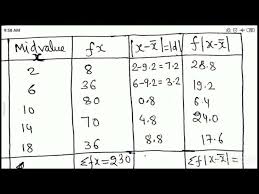 9:58 AM
Midvalue x fx |x-x̄|=|d| f|x-x̄|
2 8 2-9.2=7.2 28.8
6 36 6-9.2=3.2 19.2
10 80 0.8 6.4
14 70 4.8 24.0
18 36 8.8 17.6
Σfx=230 Σf|x-x̄|=